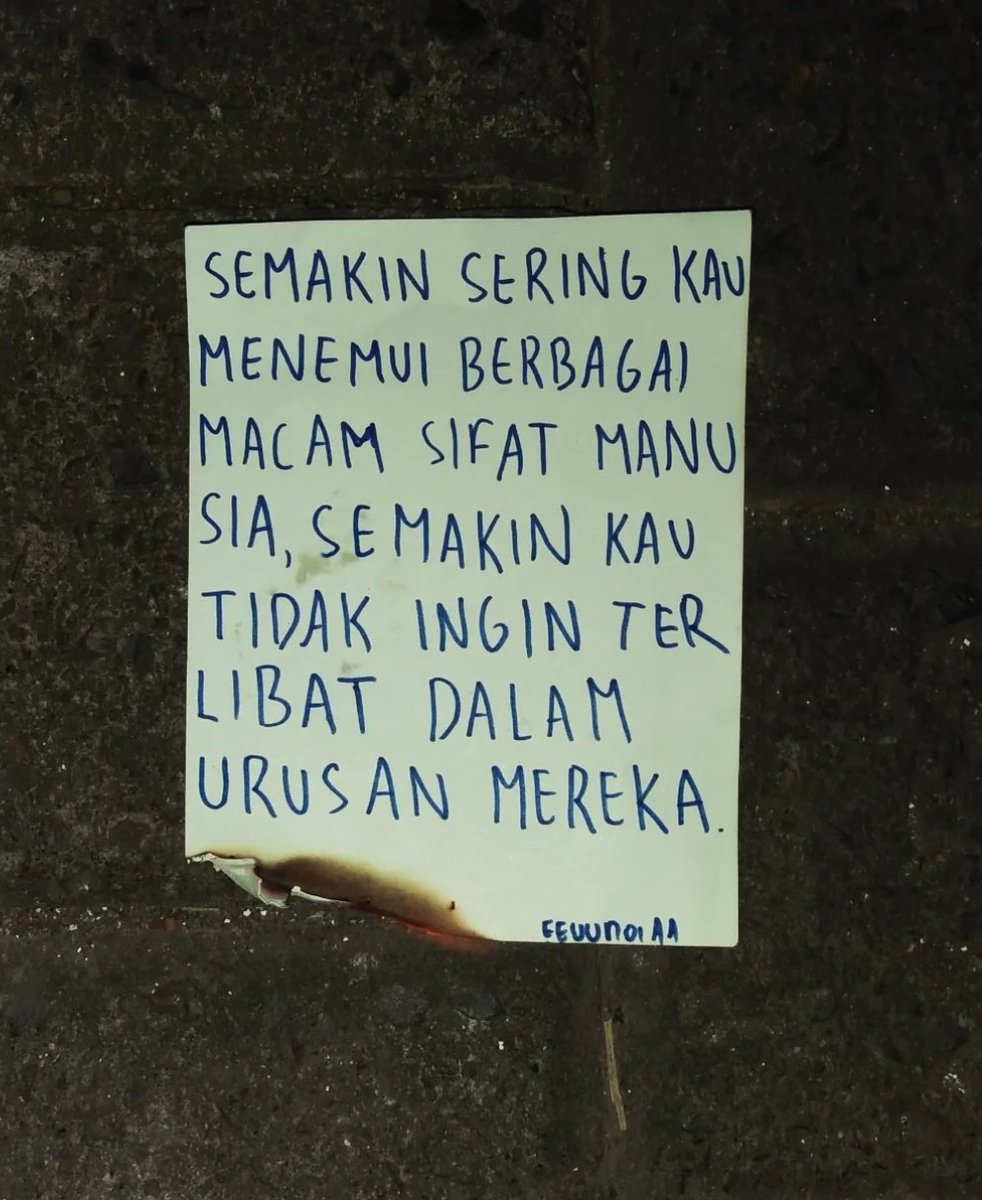 SEMAKIN SERING KAU
MENEMUI BERBAGAI
MACAM SIFAT MANU
SIA, SEMAKIN KAU
TIDAK INGIN TER
LIBAT DALAM
URUSAN MEREKA.